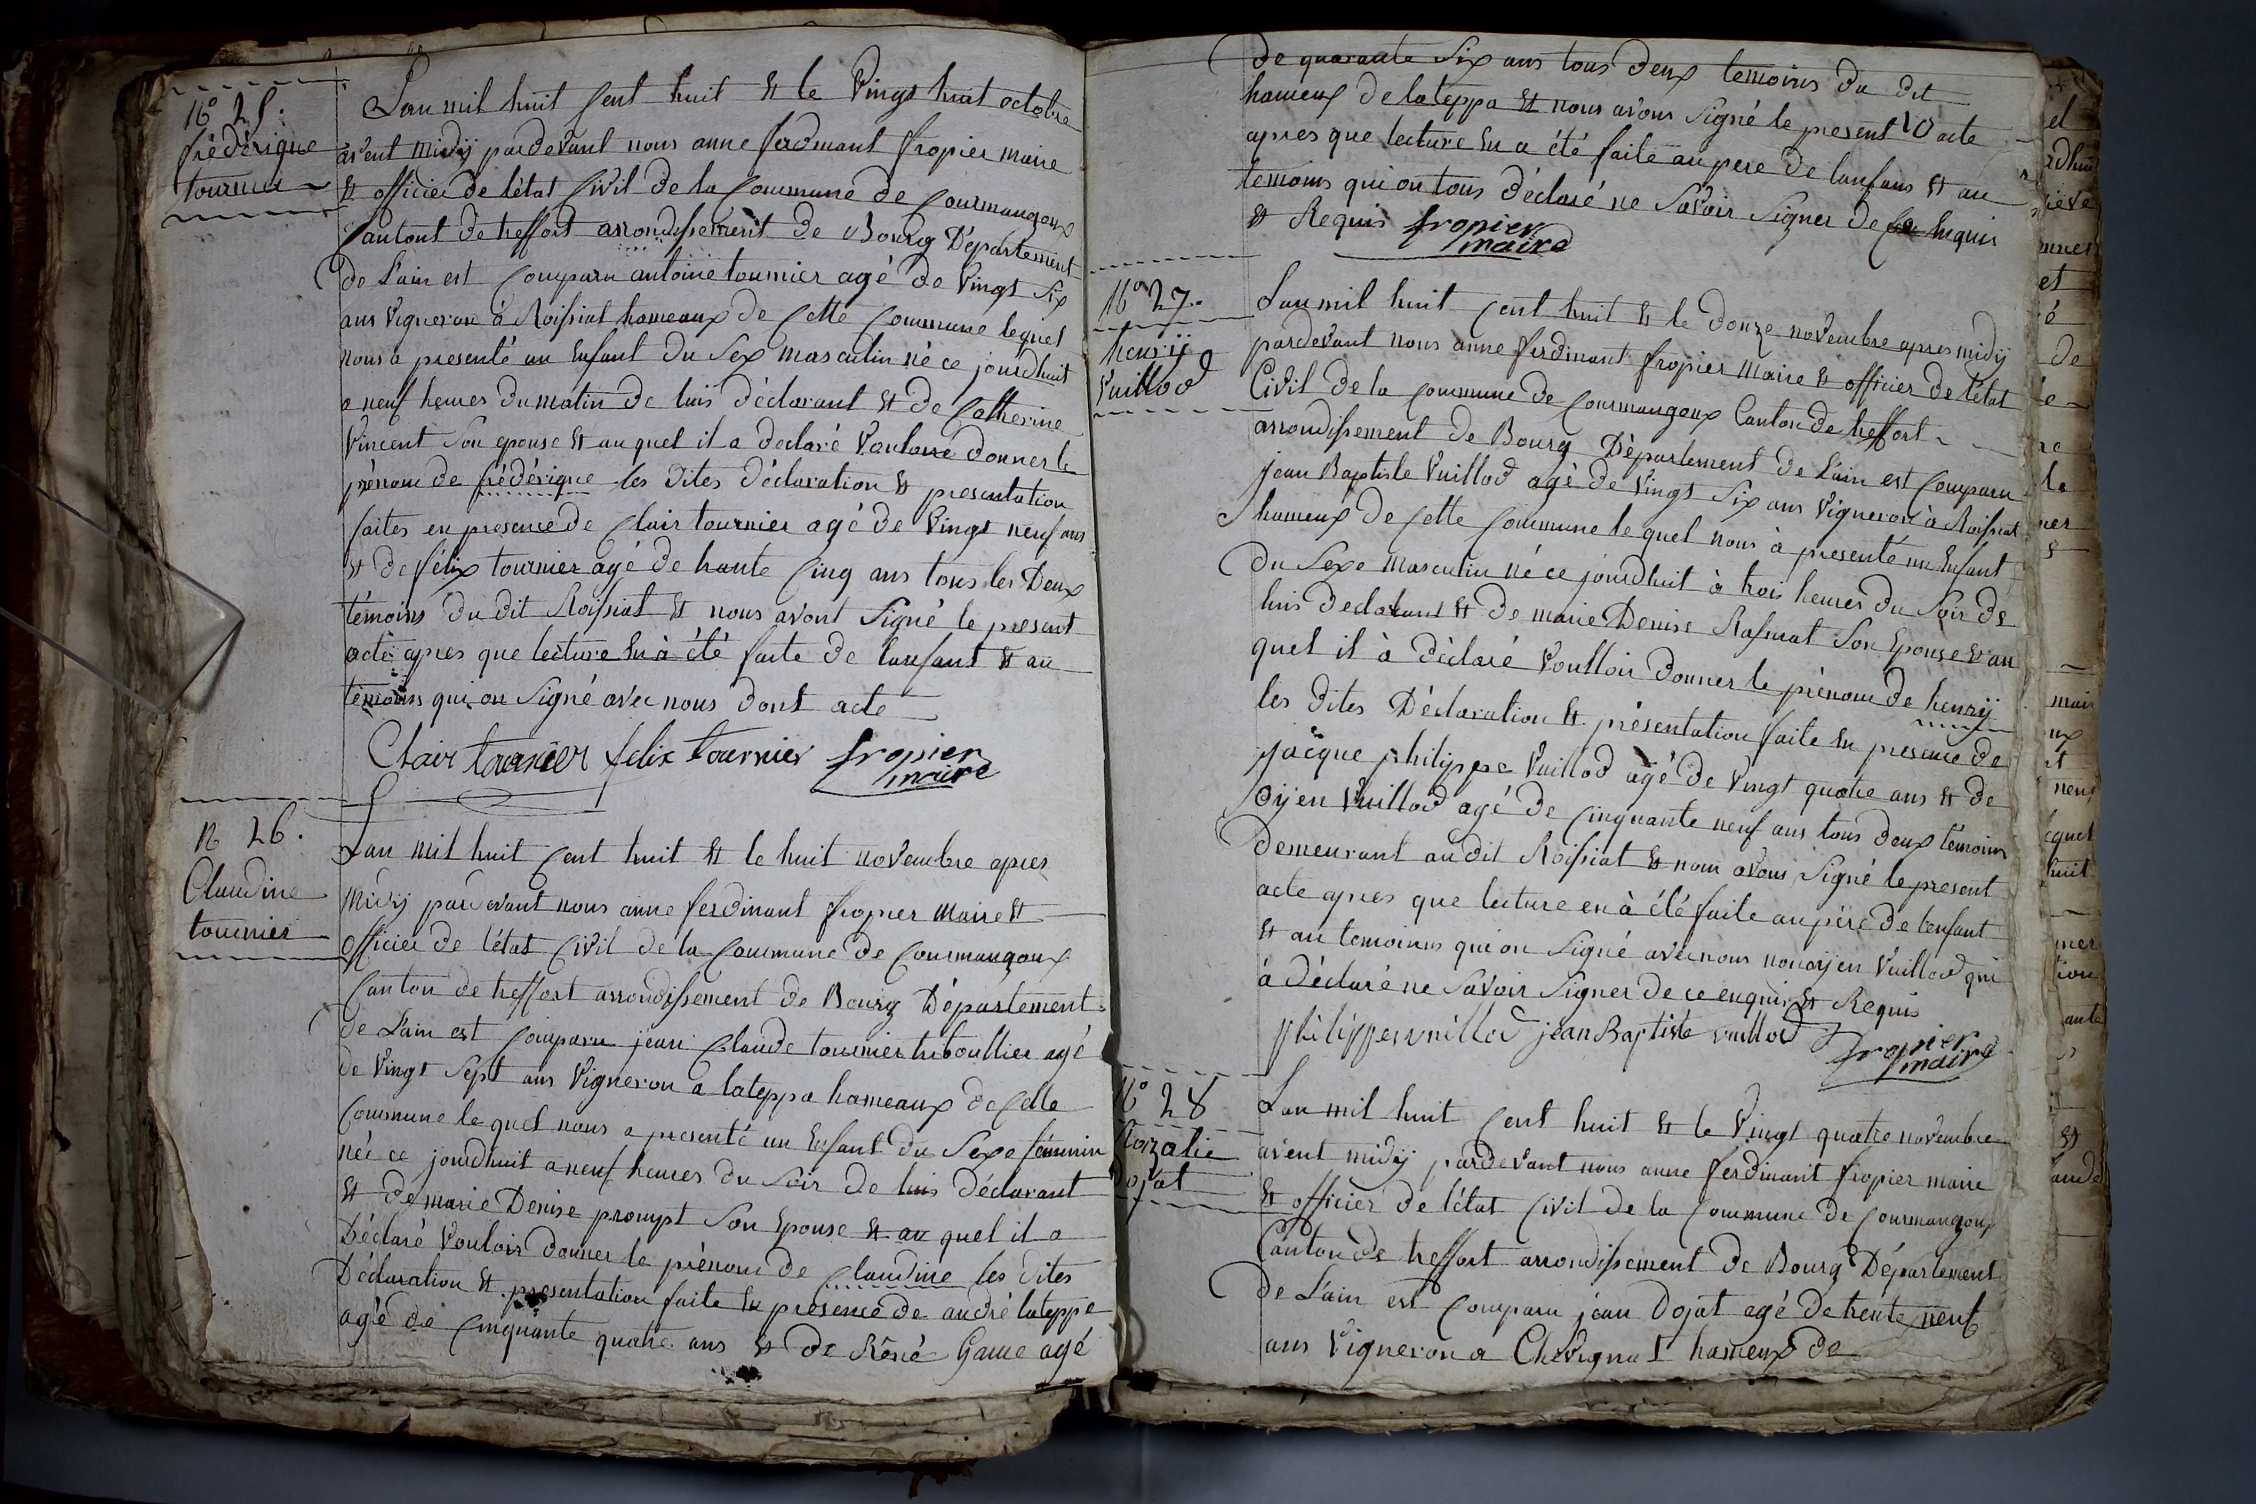 No 25.
frédérique
tournier
Lan mil huit Cent huit et le Vingt huit octobre
avent midÿ pardevant nous anne ferdinant fropier maire
et officier de létat Civil de la Commune de Courmangoux
Cantont de treffort arrondissement de Bourg Département
de Lain est Comparu antoine tournier agé de Vingt Six
ans Vigneron à Roissiat hameaux de Cette Commune lequel
nous a presenté un Enfant du Sex masculin né ce jourdhuit
a neuf heures du matin de luis déclarant et de Catherine
Vincent Son epouse et au quel il a declaré Vouloire donner le
prénom de frédérique les dites déclaration et presentation
faites en presence de Clair tournier agé de Vingt neuf ans
et de félix tournier agé de trante Cinq ans tous les Deux
témoins du dit Roissiat et nous avont Signé le present
acte apres que lecture En à été faite de lanfant et au
témoins qui on Signé avec nous dont acte
Clair tournier felix tournier fropier
maire
N 26.
Claudine
tournier
Lan mil huit Cent huit et le huit novembre apres
midÿ pardevant nous anne ferdinant fropier maire et
officier de létat Civil de la Commune de Courmangoux
Canton de treffort arrondissement de Bourg Département
de Lain est Comparu jean Claude tournier triboullier agé
de Vingt Sept ans Vigneron a lateppa hameaux de Cette
Commune le quel nous a presenté un Enfant du Sexe féminin
née ce jourdhuit a neuf heures du Soir de luis déclarant
et de marie Denise prompt Son Epouse et au quel il a
Déclaré Voulois donner le prénom de Claudine les dites
Déclaration et presentation faite En presence de andré lateppe
agé de Cinquante quatre ans et de Réné Game agé
de quarante Six ans tous deux temoins du dit
hameux de lateppa et nous avons Signé le present acte
apres que lecture En a été faite au pere de lanfans et au
temoins qui on tous déclaré ne Savoir Signer de Ce Enquis
et Requis fropier
maire
No 27.
henrÿ
Vuillod
Lan mil huit Cent huit et le douze novembre apres midÿ
pardevant nous anne ferdinant fropier maire et officier de létat
Civil de la Commune de Courmangoux Canton de treffort
arrondissement de Bourg Département de Lain est Comparu
jean Baptiste Vuillod agé de Vingt Six ans Vigneron à Roissiat
hameux de Cette Commune le quel nous à presenté un Enfant
du Sexe masculin né ce jourdhuit à trois heures du Soir de
luis declarant et de marie Denise Son Epouse et au
quel il à dèclaré Voulloir donner le prénom de henrÿ
les dites Déclaration et présentation faite En presence de
jacque philippe Vuillod agé de Vingt quatre ans et de
oÿen Vuillod agé de Cinquante neuf ans tous deux témoins
Demeurant au dit Roissiat et nous avons Signé le present
acte apres que lecture en à été faite au père de lenfant
et au temoins qui on Signé avec nous non oÿen Vuillod qui
à déclaré ne Savoir Signer de ce enquis et Requis
philippe vuillod jean Baptiste vuillod fropier
maire
No 28
Rozalie
Dojat
Lan mil huit Cent huit et le Vingt quatre novembre
avent midÿ pardevant nous anne ferdinant fropier maire
et officier de létat Civil de la Commune de Courmangoux
Canton de treffort arrondissement de Bourg Département
de Lain est Comparu jean Dojat agé de trente neuf
ans Vigneron a Chevignat hameux de